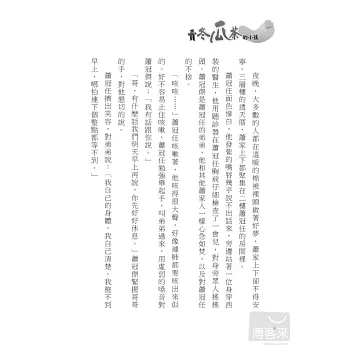 賣冬瓜茶的小孩
夜晚，大多數的人都在溫暖的棉被裡頭做著好夢，蕭家上下卻不得安
寧，三層樓的透天厝，蕭家上下都聚集在二樓蕭冠任的房間裡。
蕭冠任面色慘白，他發紫的嘴唇幾乎說不出話來，旁邊站著一位身穿西
裝的醫生，他用聽診器在蕭冠任胸前仔細檢查了一會兒，對身旁眾人搖搖
頭。蕭冠傑是蕭冠任的弟弟，他和其他蕭家人一樣心急如焚，以及對蕭冠任
的不捨。
「咳咳……」蕭冠任咳嗽著，他咳得很大聲，好像連肺都要咳出來似
的，好不容易止住咳嗽，蕭冠任勉強舉起手，叫弟弟過來，用虛弱的嗓音對
蕭冠傑說：「我有話跟你說。」
「哥，有什麼話我們明天早上再說，你先好好休息。」蕭冠傑緊握哥哥
的手，對他懇切的說。
蕭冠任擠出笑容，對弟弟說：「我自己的身體，我自己清楚，我撐不到
早上，哪怕連下個整點都等不到。」
博客來